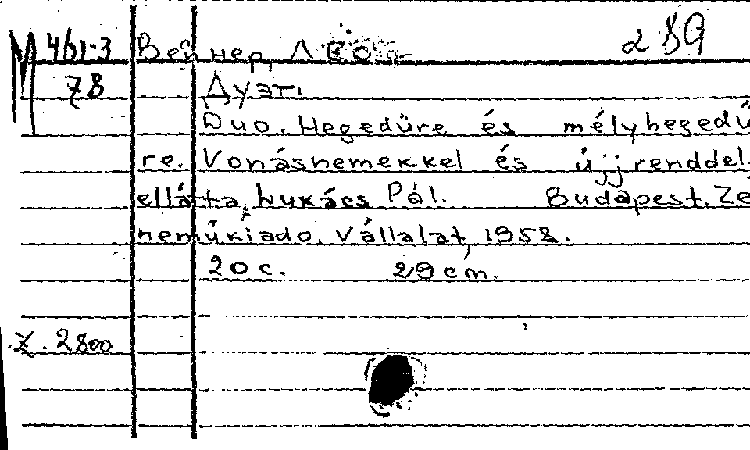 M 461-3 Вейнер, Лео d 89
78 Дуэт.
Duo. Hegedüre és mélyhegedü
re. Vonásnemekkel és újjrenddel
ellátta Lukács Pál. Budapest. Ze
nemükiado. Vállalat, 1958.
20 c. 29 cm.
Z. 2800